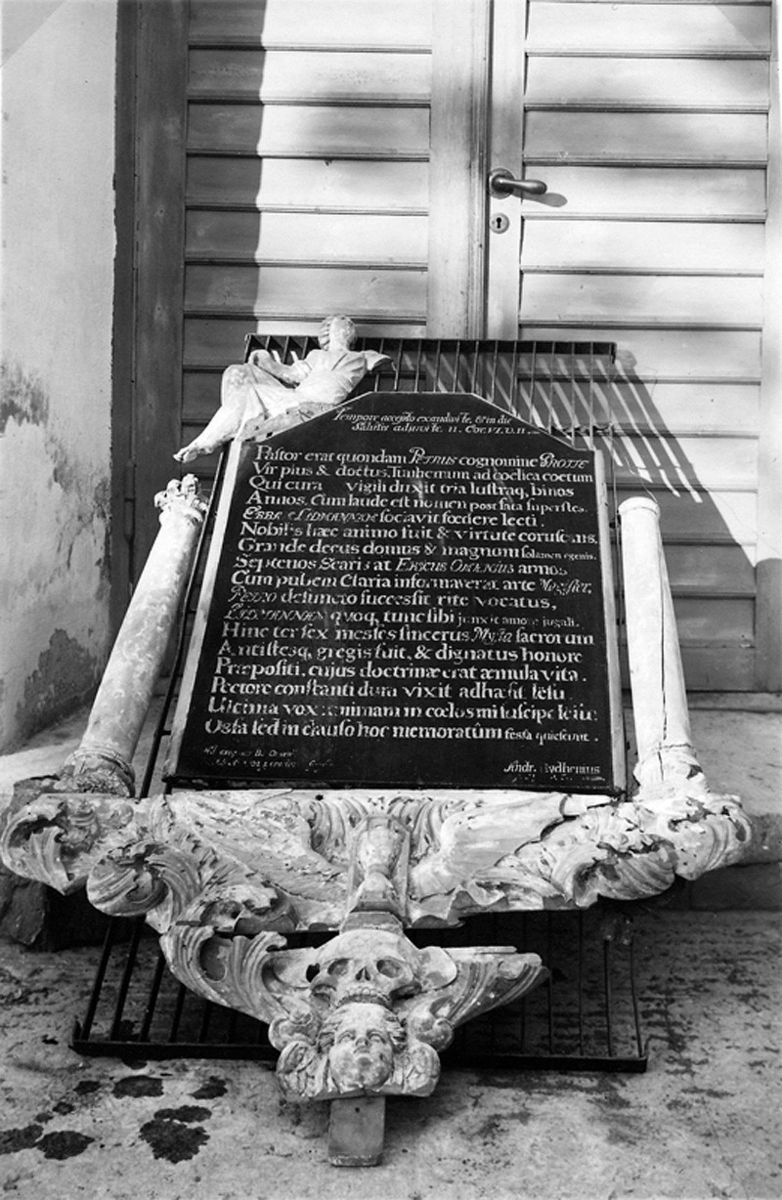 Tempore accepto exaudivi te, & in die
Salutis adjuvi te. II. Cor. VI. v. II.
Pastor erat quondam PETRUS cognomine GROTTE
Vir pius & doctus, Tunhemum ad coelica coetum
Qui cura vigili duxit tria lustraq, binos
Annos. Cum laude est nomen post fata superstes.
EBBA LIDMANNÆ sociavit foedere lecti.
Nobilis hæc animo fuit & virtute coruscans.
Grande decus domus & magnum solamen egenis.
Septenos Scaris at ERICUS ODENIUS annos
Cum pubem Claria informaverat arte Magister,
PETRO defuncto successit rite vocatus,
LIDMANNÆN quoq, tunc sibi junxit amore jugali.
Hinc ter sex messes sincerus Mysta sacrorum
Antistesq, gregis fuit, & dignatus honore
Præpositi, cujus doctrinæ erat æmula vita.
Pectore constanti dum vixit adhæsit Jesu.
Ultima vox: animam in coelos mi suscipe Jesu:
Ossa sed inclauso hoc memoratûm fessa quiescunt.
Andr. Rydhenius